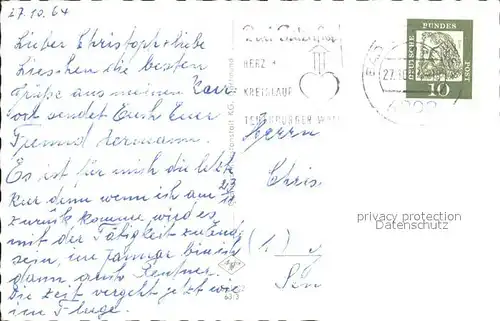 27.10.64
Lieber Christoph + liebe
Lieschen die besten
Grüße aus meinem Kur
ort sendet Euch Euer
Freund Hermann.
Es ist für mich die letzte
Kur denn wenn ich am 23/11
zurück komme wird es
mit der Tätigkeit zu Ende
sein, im Januar bin ich
dann auch Rentner.
Die Zeit vergeht jetzt wie
im Fluge.
Bad
HERZ +
KREISLAUF
TEUTOBURGER WALD
27.10
DEUTSCHE
BUNDES
POST
10
KG, Dortmund
6313
Herrn
Chris
(1)
privacy protection
Datenschutz